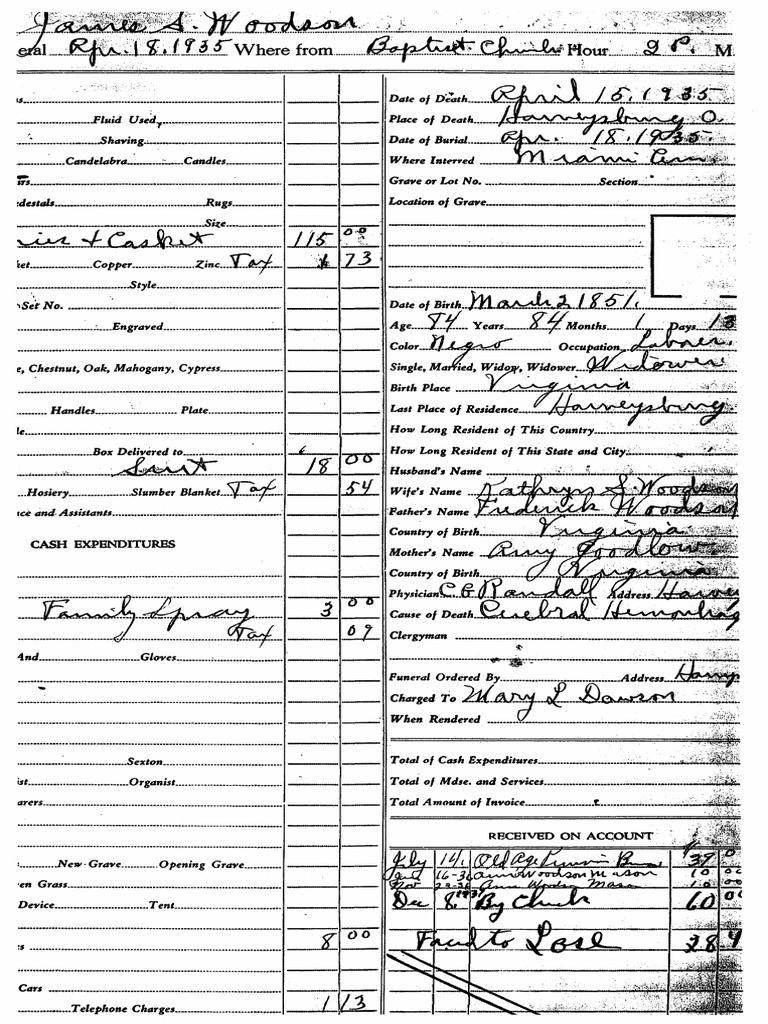 James S. Woodson
eral Apr. 18, 1935 Where from Baptist Church Hour 2 P. M
Fluid Used
Shaving
Candelabra Candles
destals Rugs
Size
& Casket 115 00
ket Copper Zinc Tax 1 73
Style
Set No.
Engraved
e, Chestnut, Oak, Mahogany, Cypress
Handles Plate
le
Box Delivered to
Suit 18 00
Hosiery Slumber Blanket Tax 54
ce and Assistants
CASH EXPENDITURES
Family Spray 3 00
Tax 09
And Gloves
Sexton
ist Organist
arers
New Grave Opening Grave
en Grass
Device Tent
s 8 00
Cars
Telephone Charges 1 13
Date of Death April 15, 1935
Place of Death Harveysburg O.
Date of Burial Apr. 18, 1935
Where Interred Miami Cem
Grave or Lot No. Section
Location of Grave
Date of Birth March 2 1851.
Age 84 Years 84 Months 1 Days 13
Color Negro Occupation Laborer
Single, Married, Widow, Widower Widower
Birth Place Virginia
Last Place of Residence Harveysburg
How Long Resident of This Country
How Long Resident of This State and City
Husband's Name
Wife's Name Kathryn S. Woodson
Father's Name Frederick Woodson
Country of Birth Virginia
Mother's Name Amy Goodlow
Country of Birth Virginia
Physician C. G. Randall Address Harvey
Cause of Death Cerebral Hemorrhag
Clergyman
Funeral Ordered By Address Harvy
Charged To Mary L Dawson
When Rendered
Total of Cash Expenditures
Total of Mdse. and Services
Total Amount of Invoice
RECEIVED ON ACCOUNT
July 14 Old Age Pension 39 0
16-36 Ann Woodson Mason 10 00
Nov Ann Woodson Mason 10 00
Dec 8, By Check 60 00
to Lose 28 4